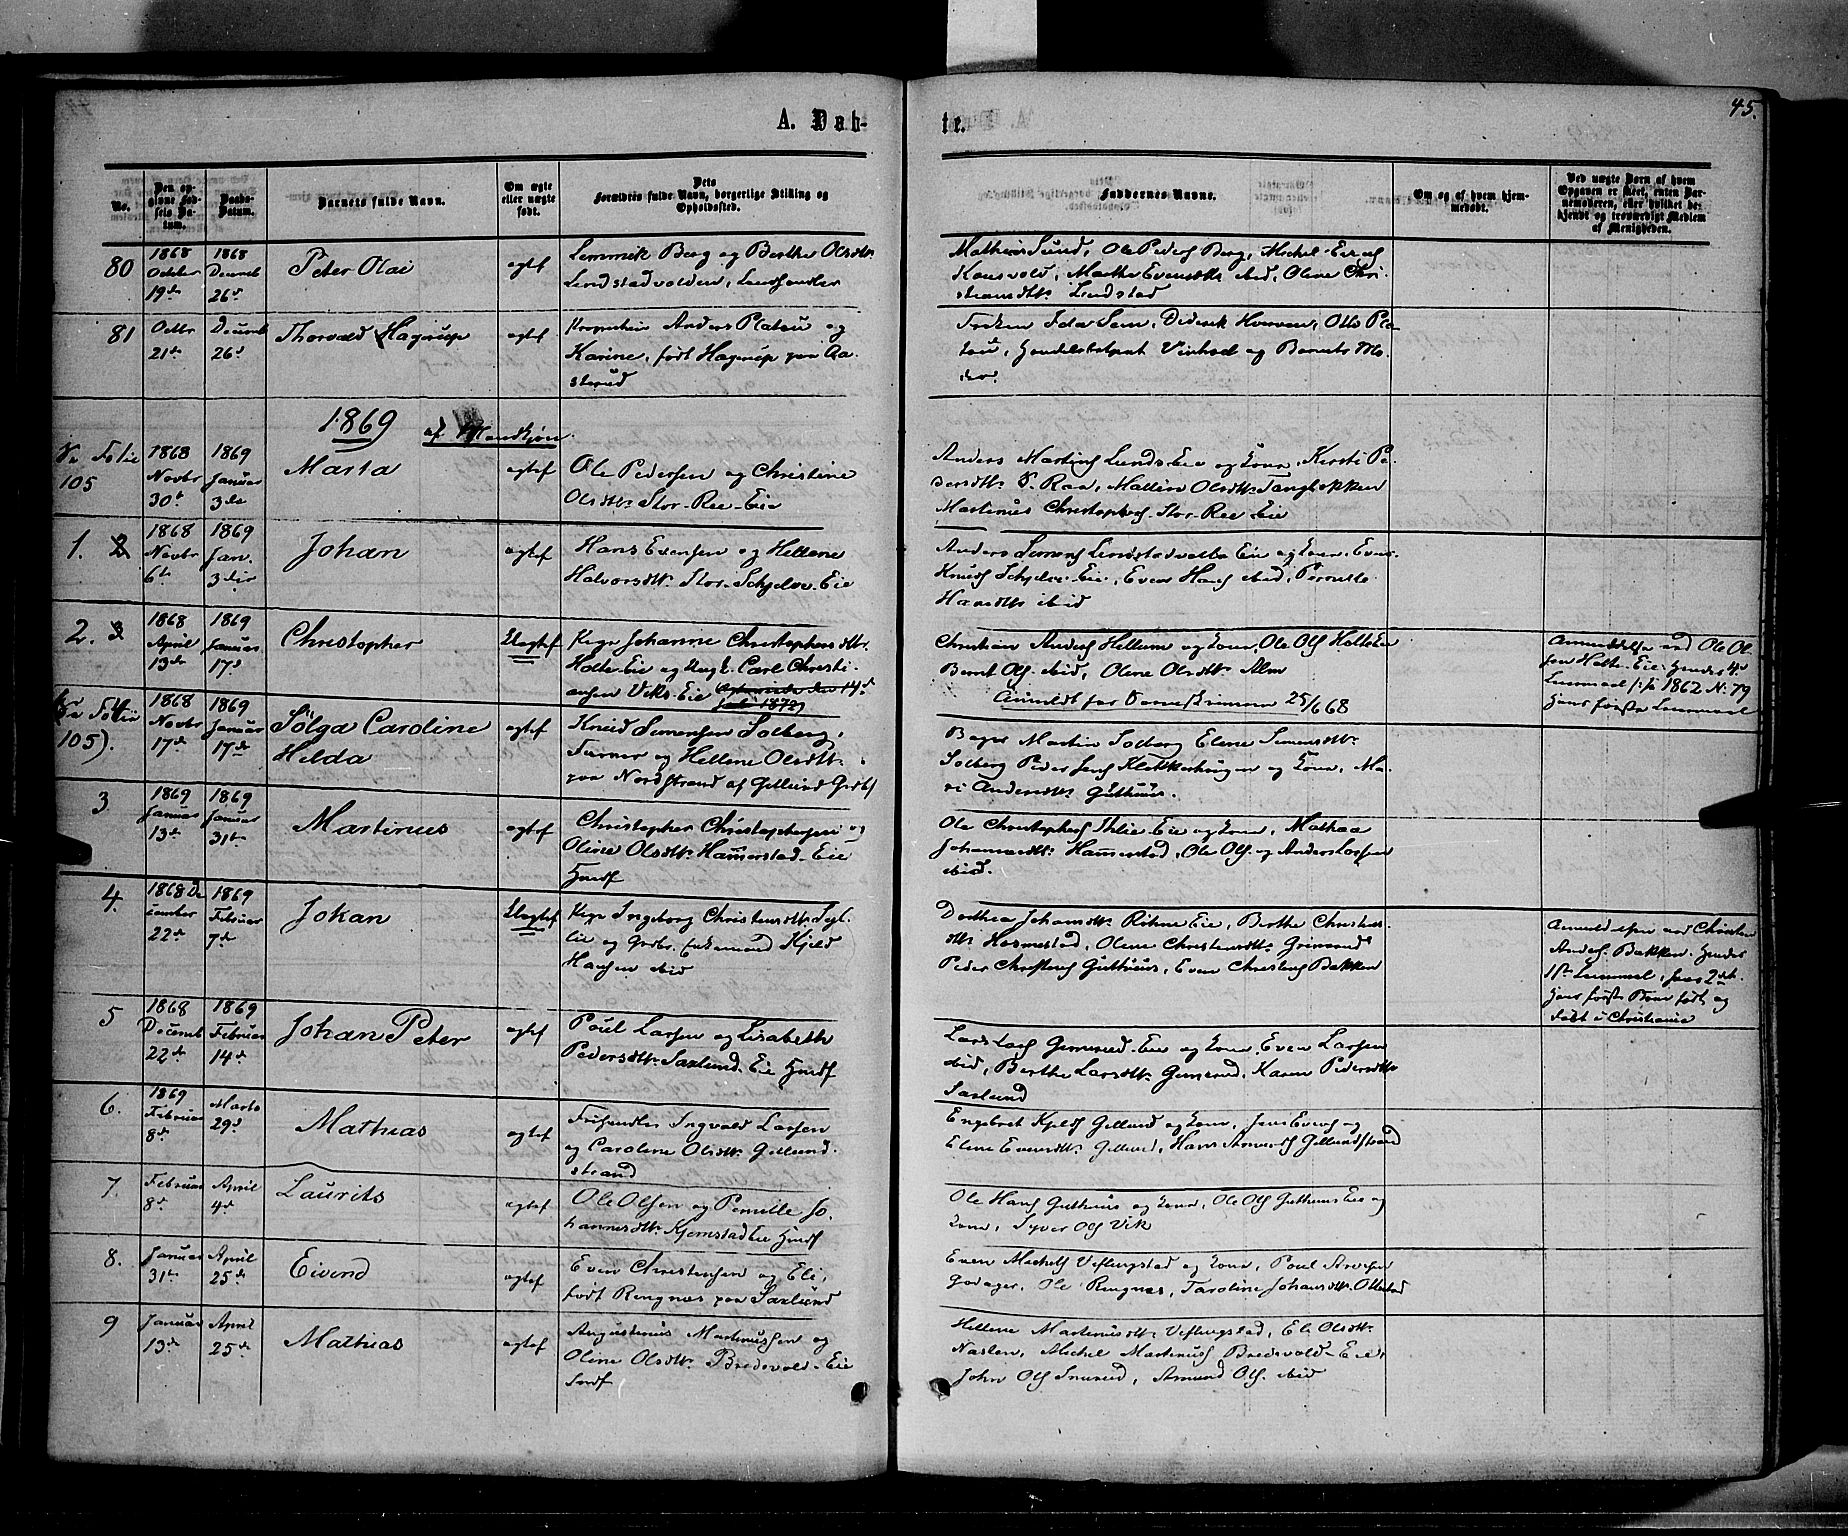 A. Døb-
te.
45.
No.
Den op-
givne Fød-
sels Da-
tum.
Daabs-
Datum.
Barnets fulde Navn.
Om ægte
eller uægte
født.
Dets
Forældres fulde Navn, borgerlige Stilling og
Opholdssted.
Faddernes Navne.
Om og af hvem hjem-
medøbt.
Ved uægte Børn af hvem
Opgaven er skeet, enten Bar-
nemoderen, eller hvilket be-
kjendt og troværdigt Medlem
af Menigheden.
80
1868
October
19de
1868
Decemb
26d
Peter Olai
ægtef
Lemmik Berg og Berthe Olsdtr
Lindstadvolden, Landhandler
Mathias Lund, Ole Peders Berg, Michel
Marthe Evensdtr ibid, Oline Chri-
stiansdtr Lindstad
81
Octbr
21de
Decemb
26d
Thorvald Hagrup
ægtef
Anders Platou og
Karine, født Hagrup paa Aa-
strud
Frøken Ida Sem, Diderik Hvoven, Otto Pla-
tou, og Barnets Mo-
der.
1869
af Mandkjøn
Se Folie
105
1868
Novbr
30t
1869
Januar
3de
Marta
ægtef
Ole Pedersen og Christine
Olsdtr Stor-Ree-Eie
Anders Martins Lunds Eie og Kone, Kersti Pe-
dersdtr S. Raa, Mallin Olsdtr Tangbakken
Martinus Christophers Stor-Ree Eie
1. 2
1868
Novbr
6te
1869
Jan.
3die
Johan
ægtef
Hans Evensen og Hellene
Halvorsdtr Stor-Schjelve-Eie
Anders Simens Lindstadvolds Eie og Kone, Even
Knuds Schjelve-Eie, Even Hans ibid, Pernille
Hansdtr ibid
2. 3
1868
April
13de
1869
Januar
17d
Christopher
Uægtef
Pige Johanne Christophersdtr
Holte-Eie og Ungk. Carl Christi-
ansen Viks-Eie
Juli 1872
Christian Anders Hellum og Kone, Ole Ols Holte Eie
Bernt Ols ibid, Oline Olsdtr Alm
Anmeldt for 25/6 68
Anmeldelse ved Ole Ol-
sen Holte-Eie; Hendes 4d
Leiermaal f. f. 1862 N. 79
Hans første Leiermaal
Se Folie
105).
1868
Novbr
17d
1869
Januar
17de
Sølga Caroline
Helda
ægtef
Knud Simensen Solberg,
og Hellene Olsdtr
paa Nordstrand af Gillund Grdbr
Bager Martin Solberg Elene Simensdtr
Solberg Peder Jens Klækkerhaugen og Kone, Ma-
ri Andersdtr Guthuus.
3
1869
Januar
13de
1869
Januar
31te
Martinus
ægtef
Christopher Christophersen og
Oline Olsdtr Hammerstad-Eie
Hmdf
Ole Christophers Ihlie Eie og Kone, Mathea
Johannesdtr Hammerstad, Ole Ols. og Anders Larsen
ibid.
4.
1868 De
cember
22de
1869
Februar
7de
Johan
Uægtef
Pige Ingeborg Christensdtr
Eie og Grdbr. Enkemand Kjeld
Hansen ibid
Dorthea Johansdtr Rohne Eie, Berthe Christens
dtr Hammerstad, Oline Christensdtr Grimrud
Peder Christens Guthuus, Even Christens Bakken
Anmeldelse ved Christen
Anders. Bakken. Hendes
1ste Leiermaal, hans 2det.
Hans første Barn født og
døbt i Christiania
5
1868
Decemb
22de
1869
Februar
14de
Johan Peter
ægtef
Poul Larsen og Lisabeth
Pedersdtr Saxlund Eie Hmdf
Lars Lars Gimrud-Eie og Kone, Even Larsen
ibid, Berthe Larsdtr Gimrud, Karen Pedersdtr
Saxlund
6.
1869
Februar
8de
Marts
29d
Mathias
ægtef
Ingvald Larsen
og Caroline Olsdtr Gillund-
strand
Engebret Kjelds Gillund og Kone, Jens Evens og
Eline Evensdtr Gillund, Hans Amunds Gillundstrand
7.
Februar
8de
April
4de
Laurits
ægtef
Ole Olsen og Pernille Jo-
hannesdtr Kjemstad Eie Hmdf
Ole Hans Guthuus og Kone, Ole Ols Guthuus Eie og
Kone, Syver Ols Vik
8.
Januar
31te
April
25de
Eivind
ægtef
Even Christensen og Eli,
født Ringnæs paa Saxlund
Even Michels Veflingstad og Kone, Poul Arvesen
Godager, Ole Ringnæs, Caroline Johansdtr Ottestad
9
Januar
13de
April
25de
Mathias
ægtef
Augustinus Martinussen og
Oline Olsdtr Bredvold-Eie
Indf
Hellene Martinusdtr Veflingstad, Eli Olsdtr
Naslien, Michel Martinus Bredvold-Eie,
John Ols Snerud, Amund Ols. ibid